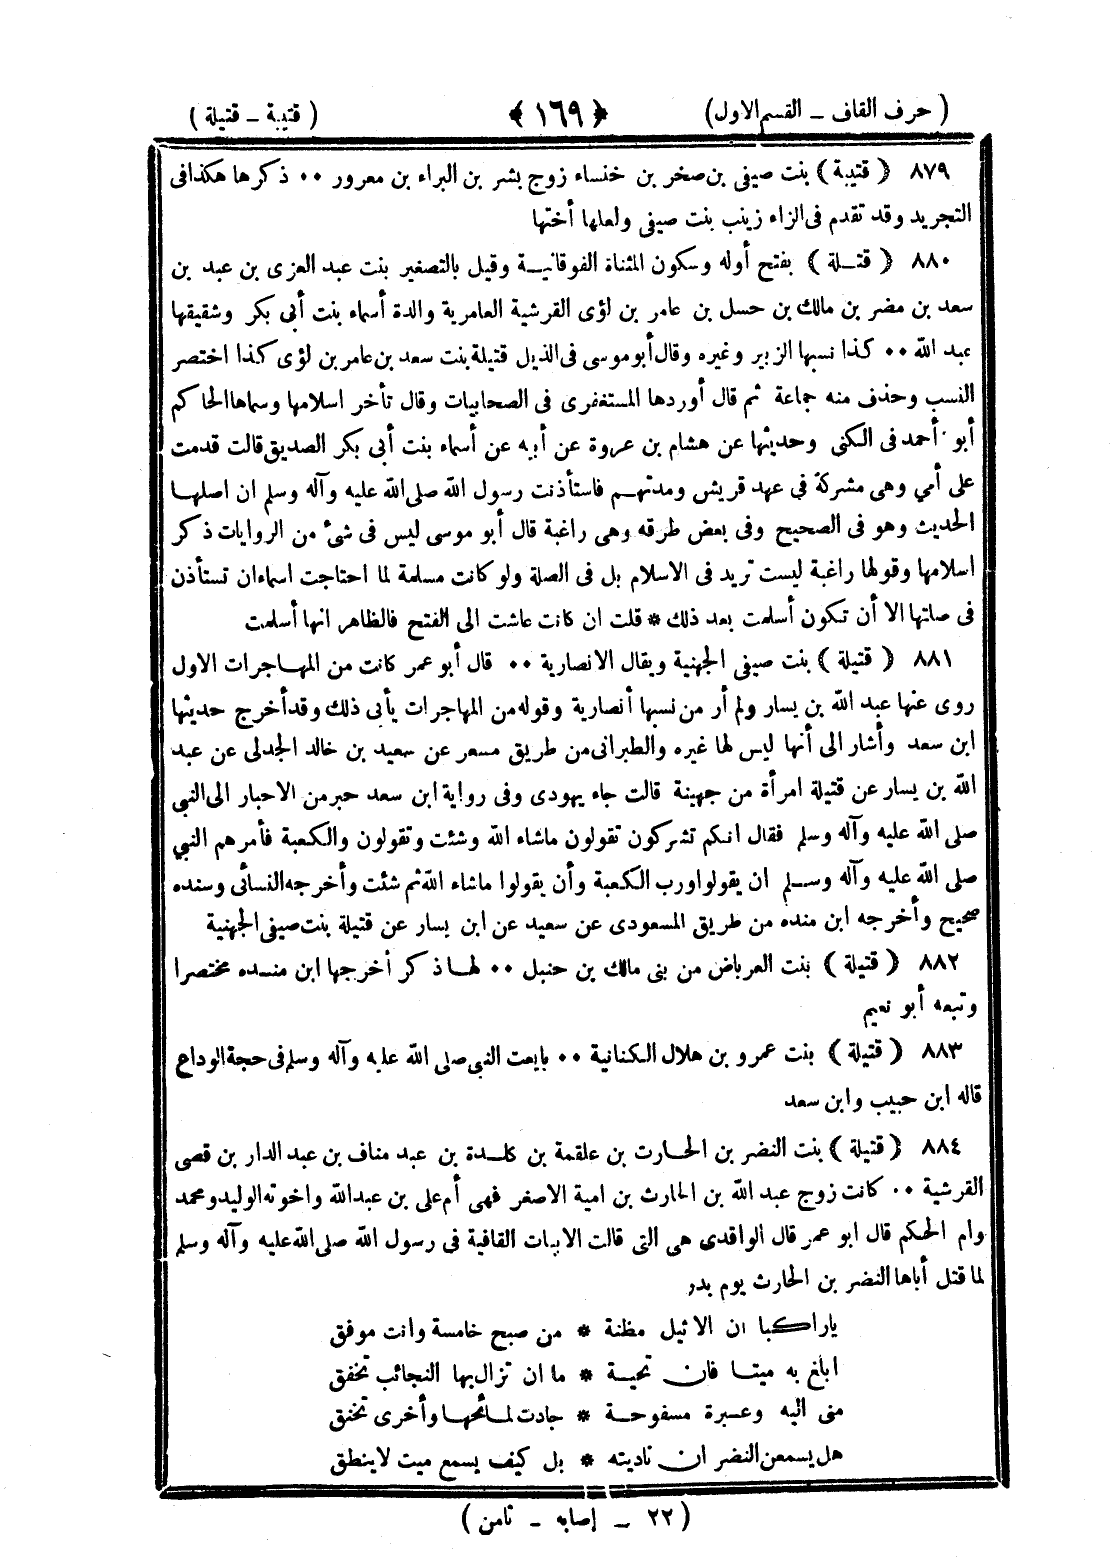 ( حرف القاف ــ القسم الاول) ﴿ ١٦٩ ﴾ ( قتيبة ــ قتيلة )
٨٧٩ ﴿ قتيبة ﴾ بنت صيفى بن صخر بن خنساء زوج بشر بن البراء بن معرور ٠٠ ذكرها هكذا فى
التجريد وقد تقدم فى الزاء زينب بنت صيفى ولعلها أختها
٨٨٠ ﴿ قتــلة ﴾ بفتح أوله وسكون المثناة الفوقانيــة وقيل بالتصغير بنت عبد العزى بن عبد بن
سعد بن مضر بن مالك بن حسل بن عامر بن لؤى القرشية العامرية والدة أسماء بنت أبى بكر وشقيقها
عبد الله ٠٠ كذا نسبها الزبير وغيره وقال أبو موسى فى الذيل قتيلة بنت سعد بن عامر بن لؤى كذا اختصر
النسب وحذف منه جماعة ثم قال أوردها المستغفرى فى الصحابيات وقال تأخر اسلامها وسماها الحاكم
أبو أحمد فى الكنى وحديثها عن هشام بن عروة عن أبيه عن أسماء بنت أبى بكر الصديق قالت قدمت
على أمي وهى مشركة في عهد قريش ومدتهــم فاستأذنت رسول الله صلى الله عليه وآله وسلم ان اصلهــا
الحديث وهو فى الصحيح وفى بعض طرقه وهى راغبة قال أبو موسى ليس فى شئ من الروايات ذكر
اسلامها وقولها راغبة ليست تريد فى الاسلام بل فى الصلة ولو كانت مسلمة لما احتاجت اسماء ان تستأذن
فى صلتها الا أن تكون أسلمت بعد ذلك * قلت ان كانت عاشت الى الفتح فالظاهر انها أسلمت
٨٨١ ﴿ قتيلة ﴾ بنت صيفى الجهنية ويقال الانصارية ٠٠ قال أبو عمر كانت من المهــاجرات الاول
روى عنها عبد الله بن يسار ولم أر من نسبها أنصارية وقوله من المهاجرات يأبى ذلك وقد أخرج حديثها
ابن سعد وأشار الى أنها ليس لها غيره والطبرانى من طريق مسعر عن سعيد بن خالد الجدلى عن عبد
الله بن يسار عن قتيلة امرأة من جهينة قالت جاء يهودى وفى رواية ابن سعد حبر من الاحبار الى النبي
صلى الله عليه وآله وسلم فقال انكم تشركون تقولون ماشاء الله وشئت وتقولون والكعبة فأمرهم النبي
صلى الله عليه وآله وســلم ان يقولوا ورب الكعبة وأن يقولوا ماشاء الله ثم شئت وأخرجه النسائى وسنده
صحيح وأخرجه ابن منده من طريق المسعودى عن سعيد عن ابن يسار عن قتيلة بنت صيفى الجهنية
٨٨٢ ﴿ قتيلة ﴾ بنت العرباض من بنى مالك بن حنبل ٠٠ لهــا ذكر أخرجها ابن منــده مختصرا
وتبعه أبو نعيم
٨٨٣ ﴿ قتيلة ﴾ بنت عمرو بن هلال الكنانية ٠٠ بايعت النبي صلى الله عليه وآله وسلم فى حجة الوداع
قاله ابن حبيب وابن سعد
٨٨٤ ﴿ قتيلة ﴾ بنت النضر بن الحــارث بن علقمة بن كلــدة بن عبد مناف بن عبد الدار بن قصى
القرشية ٠٠ كانت زوج عبد الله بن الحارث بن امية الاصغر فهى أم على بن عبد الله واخوته الوليد ومحمد
وام الحكم قال ابو عمر قال الواقدى هى التى قالت الابيات القافية فى رسول الله صلى الله عليه وآله وسلم
لما قتل أباها النضر بن الحارث يوم بدر
ياراكبا ان الاثيل مظنة * من صبح خامسة وانت موفق
ابلغ به ميتــا فان تحيــة * ما ان تزال بها النجائب تخفق
منى اليه وعــبرة مسفوحــة * جادت لمائحهــا وأخرى تخنق
هل يسمعن النضر ان ناديته * بل كيف يسمع ميت لاينطق
( ٢٢ ــ إصابه ــ ثامن )